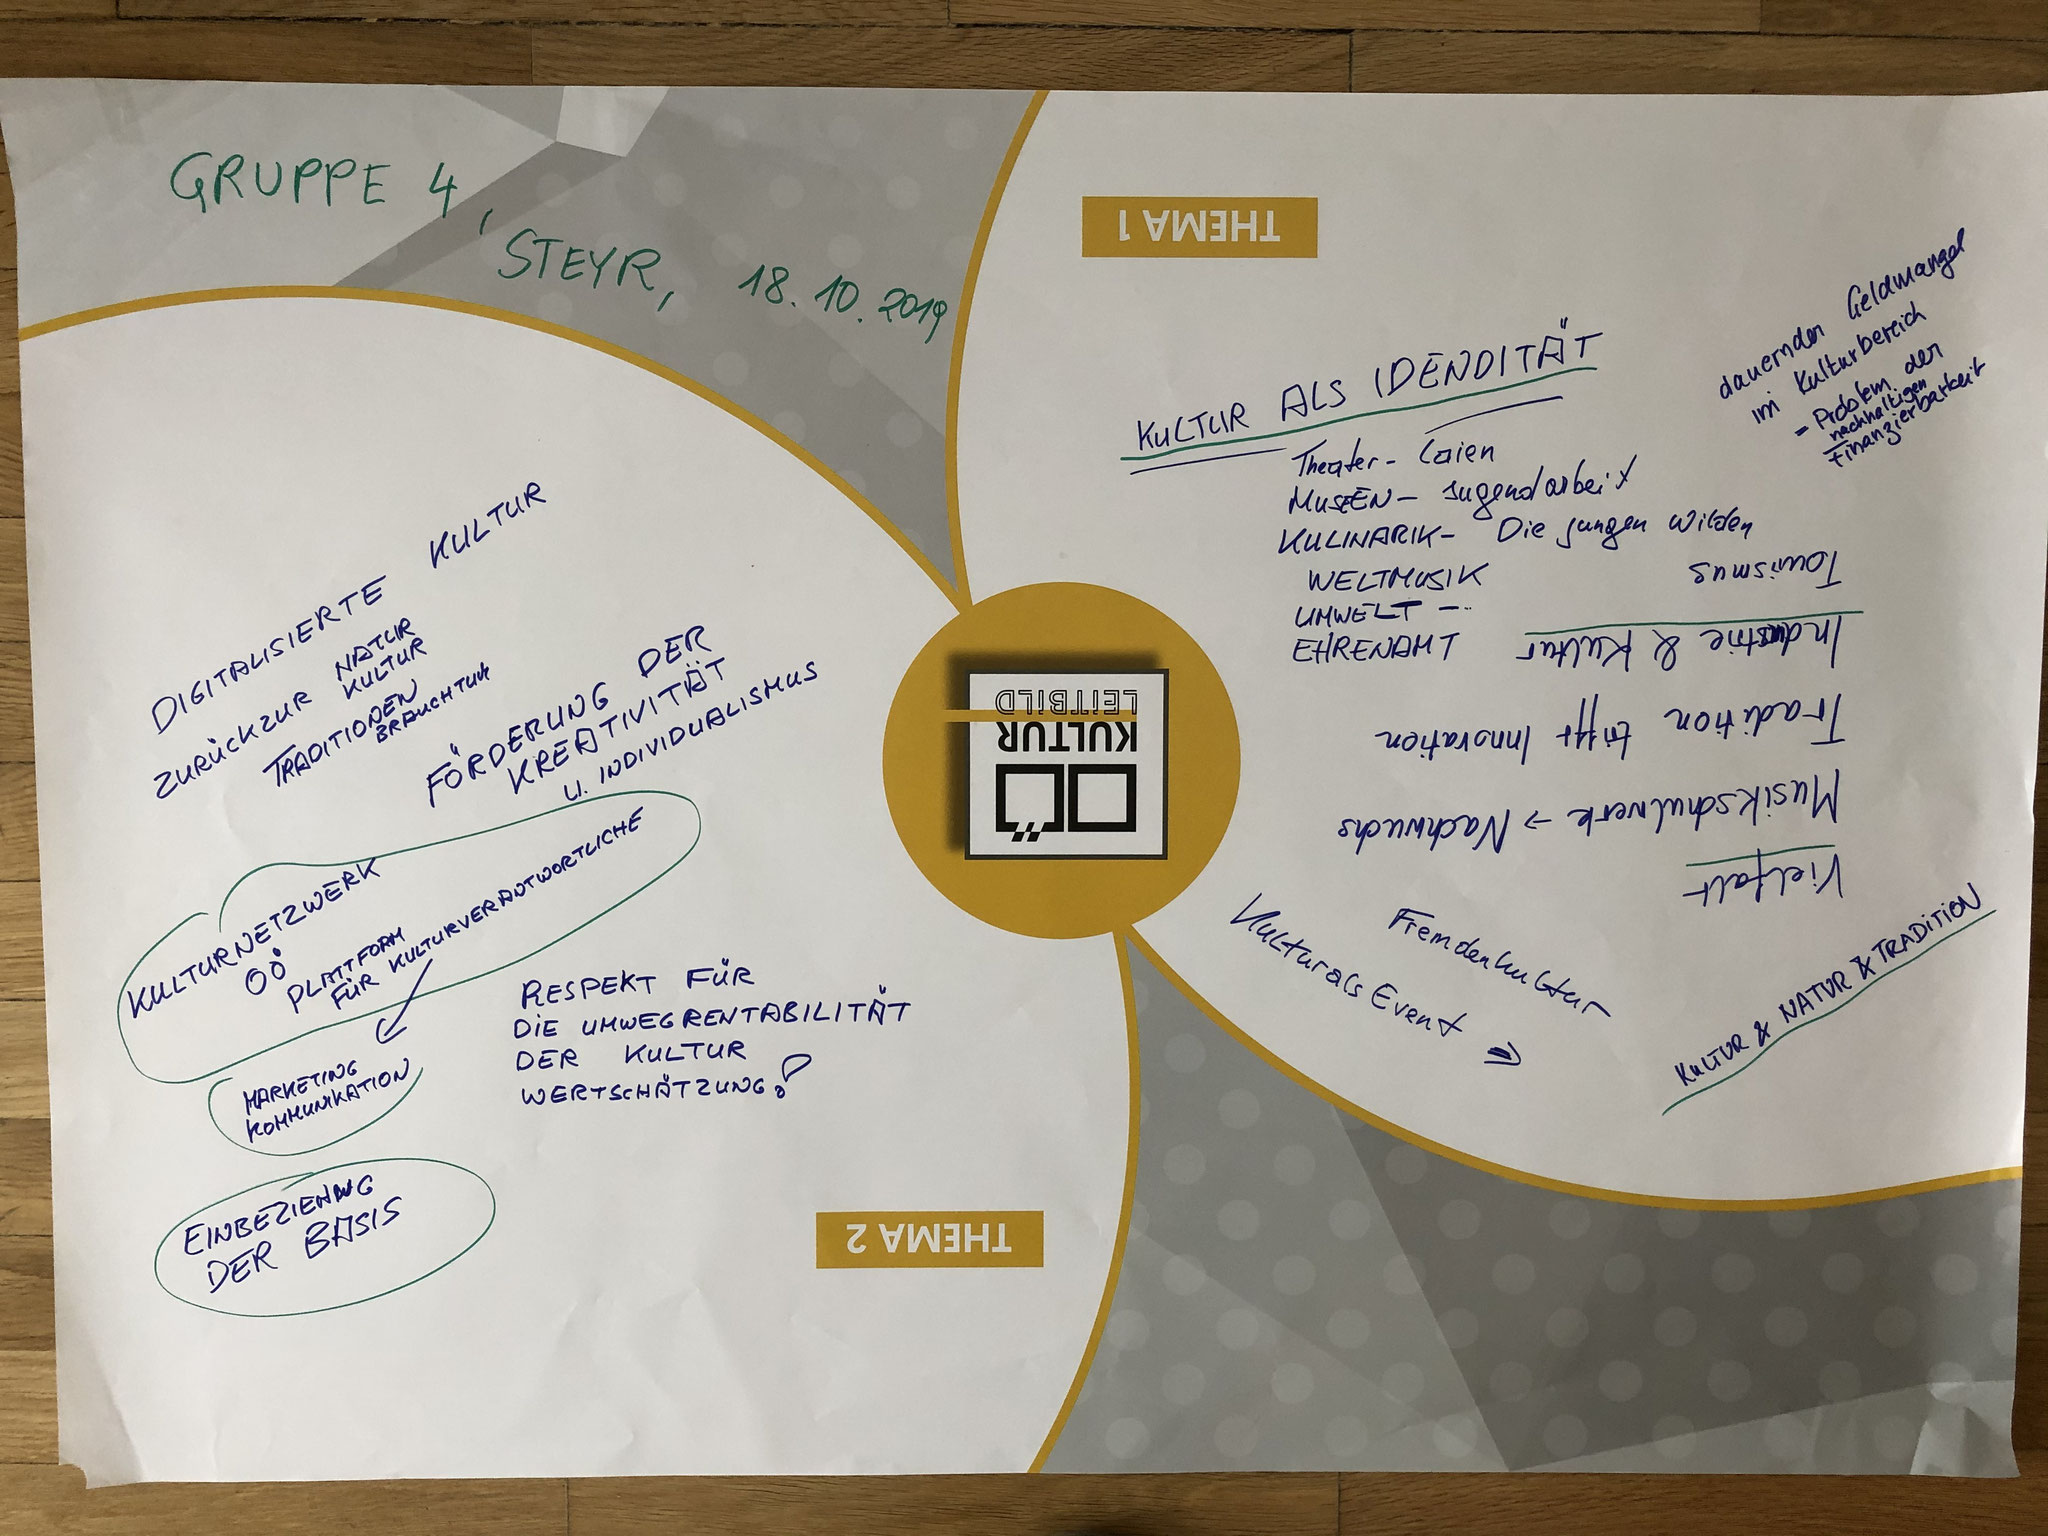 GRUPPE 4,
STEYR, 18.10.2019
THEMA 1
KULTUR ALS IDENDITÄT
Theater - Laien
MUSEEN - Jugendarbeit
KULINARIK - Die jungen Wilden
WELTMUSIK
UMWELT -
EHRENAMT
dauernder Geldmangel
im Kulturbereich
= Problem der
nachhaltigen
Finanzierbarkeit
Tourismus
Industrie & Kultur
Tradition trifft Innovation
Musikschulwerk → Nachwuchs
Vielfalt
Fremdenkultur
Kultur als Event ⇒
KULTUR & NATUR & TRADITION
OÖ
KULTUR
LEITBILD
DIGITALISIERTE KULTUR
ZURÜCK ZUR NATUR
KULTUR
TRADITIONEN
BRAUCHTUM
FÖRDERUNG DER
KREATIVITÄT
U. INDIVIDUALISMUS
KULTURNETZWERK
OÖ
PLATTFORM
FÜR KULTURVERANTWORTLICHE
MARKETING
KOMMUNIKATION
EINBEZIEHUNG
DER BASIS
RESPEKT FÜR
DIE UMWEGRENTABILITÄT
DER KULTUR
WERTSCHÄTZUNG!
THEMA 2